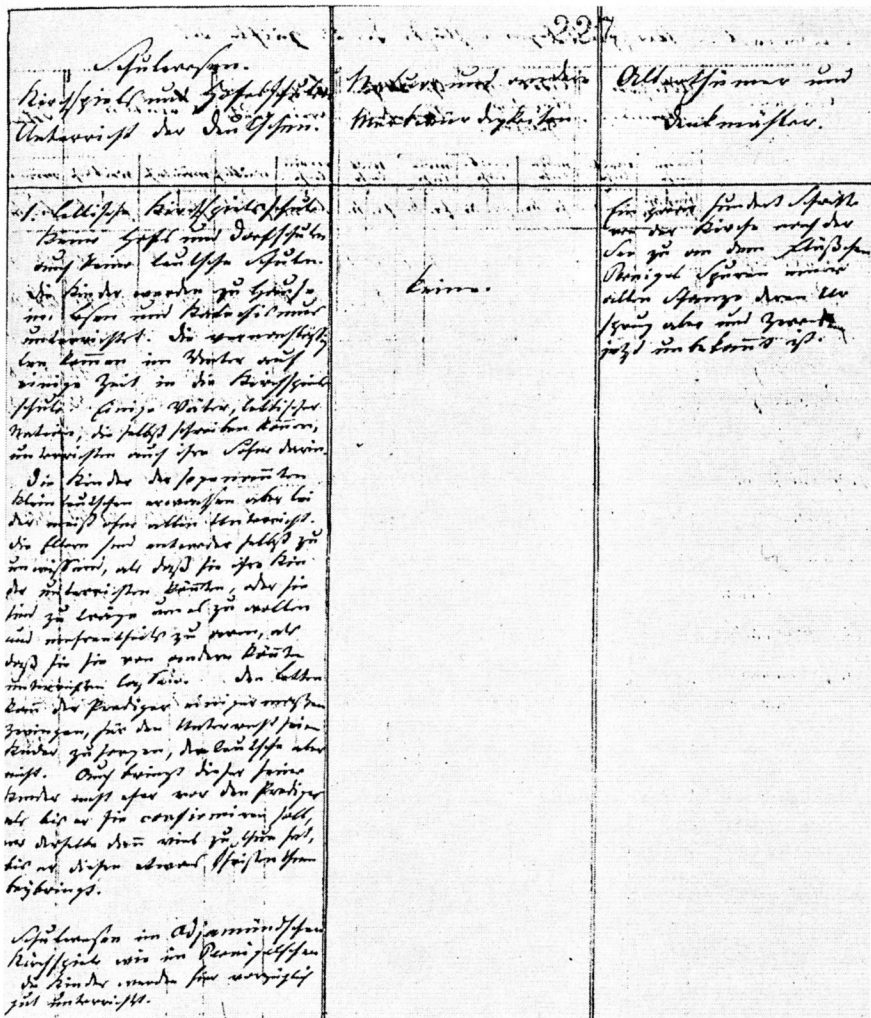 227
Schulwesen.
Kirchspiels und Hofesschulen
Unterricht der Deutschen.
1. lettische Kirchspielsschule
Keine Hofs und Dorfschulen
auch keine teutsche Schulen.
Die Kinder werden zu Hause
im Lesen und Katechismus
unterrichtet. Die vernachläßig
ten kommen im Winter auch
einige Zeit in die Kirchspiels
schule. Einige Väter, lettischer
Nation, die selbst schreiben können,
unterrichten auch ihre Söhne darin.
Die Kinder der sogenannten
Kleinteutschen erwachsen aber lei
der meist ohne allen Unterricht.
Die Eltern sind entweder selbst zu
unwissend, als daß sie ihre Kin
der unterrichten könnten, oder sie
sind zu träge um es zu wollen
und mehrentheils zu arm, als
daß sie sie von andern könnten
unterrichten laßen. Den Letten
kann der Prediger einigermaßen
zwingen, für den Unterricht seiner
Kinder zu sorgen, den teutschen aber
nicht. Auch bringt dieser seine
Kinder nicht eher vor den Prediger
als bis er sie confirmiren soll,
wo derselbe denn viel zu thun hat,
bis er diesen etwas Christenthum
beybringt.
Schulwesen im Adjamündschen
Kirchspiele wie im Pernigelschen
die Kinder werden hier vorzüglich
gut unterrichtet.
Natur und andere
Merkwürdigkeiten.
Keine.
Alterthümer und
Denkmähler.
Ein paar hundert Schritte
von der Kirche nach der
See zu an dem Flüßchen
Pernigel Spuren einer
alten Schanze deren Ur
sprung aber und Zweck
jetzt unbekannt ist.